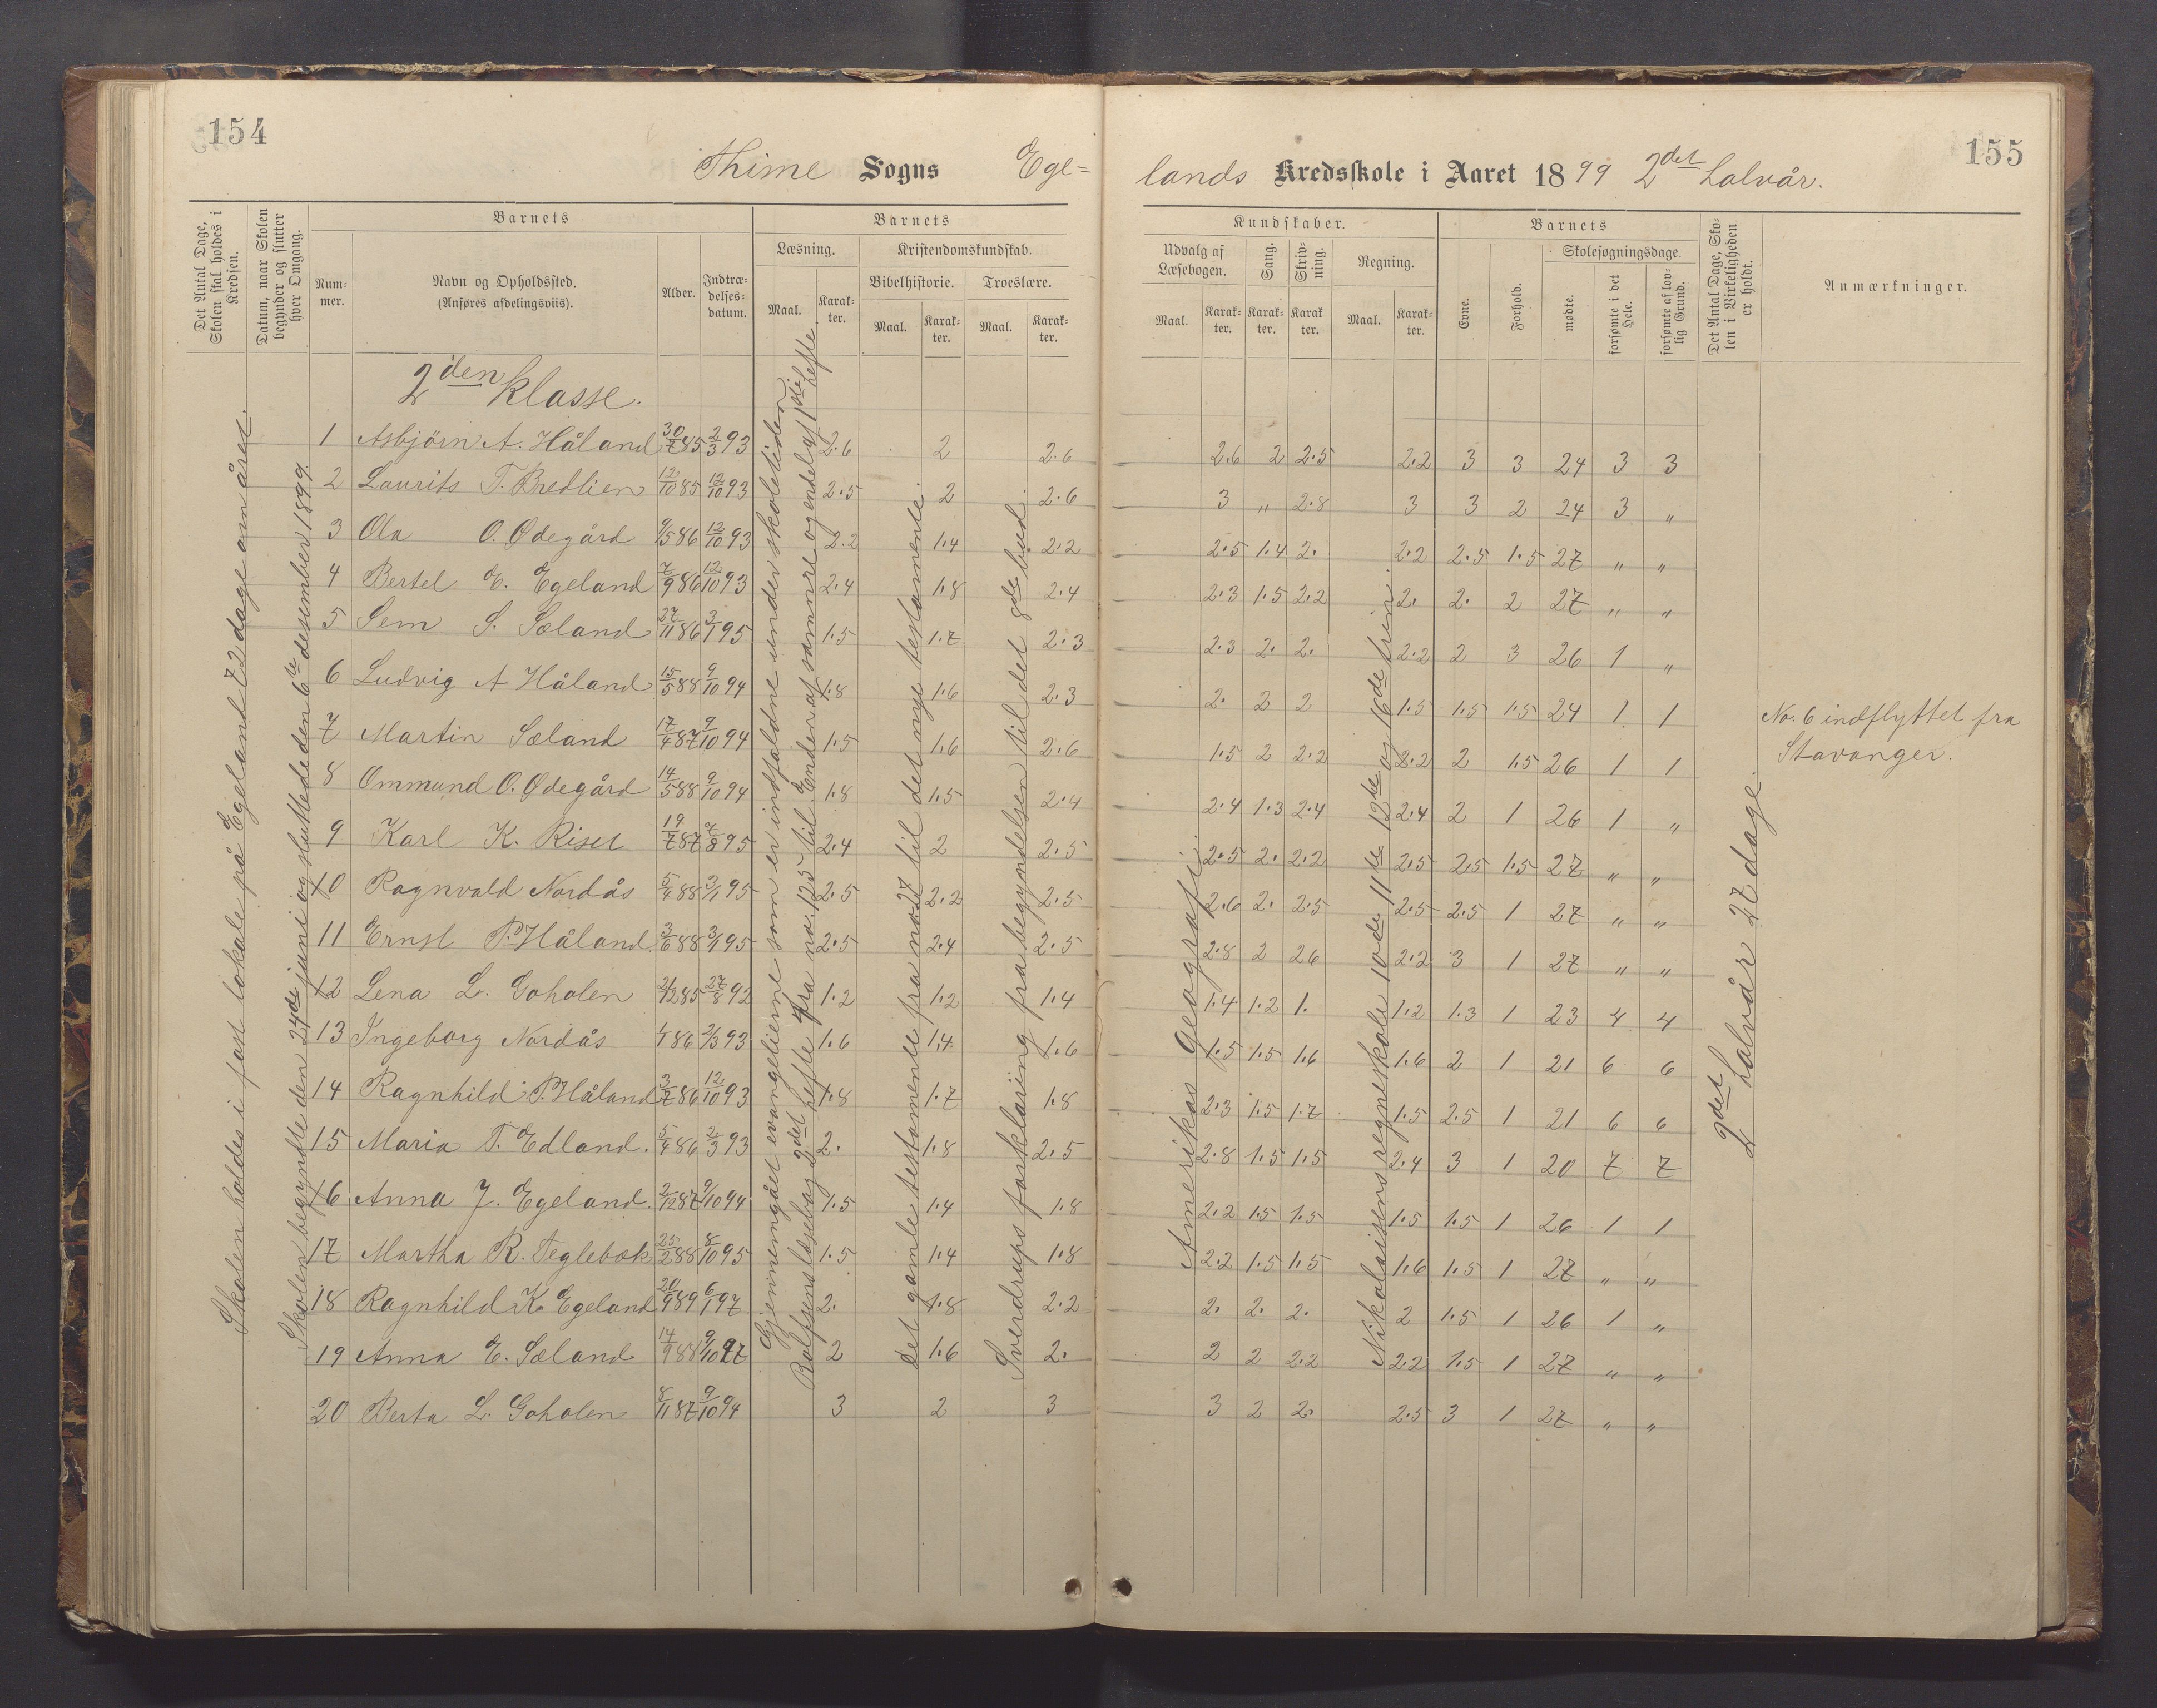 154
Thime Sogns Ege=
Det Antal Dage, Skolen skal holdes i Kredsen.
Datum, naar Skolen begynder og slutter hver Omgang.
Barnets
Num-mer.
Navn og Opholdssted.
(Anføres afdelingsviis).
Alder.
Indtræ-delses-datum.
Barnets
Læsning.
Kristendomskundskab.
Bibelhistorie.
Troeslære.
Maal. Karak-ter. Maal. Karak-ter. Maal. Karak-ter.
Skolen holdes i fast lokale på Egeland 72 dage om året.
Skolen begyndte den 24de juni og sluttede den 6te desember 1899.
Gjennemgået evangelierne som er indfaldne under skoletiden
Rolfsens læsebog 2det hefte fra no. 125 til Enden af samme og endel af 1ste hefte.
Det gamle testamente fra no. 27 til det nye testamente.
Sverdrups forklaring fra begyndelsen til det 8de bud.
2den klasse.
1 Asbjörn A. Håland 30/7 85 2/3 93 2.6 2 2.6
2 Laurits T. Bredlien 12/10 85 12/10 93 2.5 2 2.6
3 Ola O. Ødegård 9/5 86 12/10 93 2.2 1.4 2.2
4 Bertel E. Egeland 7/9 86 12/10 93 2.4 1.8 2.4
5 Sem S. Sæland 27/11 86 3/1 95 1.5 1.7 2.3
6 Ludvig A Håland 15/5 88 9/10 94 1.8 1.6 2.3
7 Martin Sæland 17/4 87 9/10 94 1.5 1.6 2.6
8 Ommund O. Ødegård 14/5 88 9/10 94 1.8 1.5 2.4
9 Karl K. Riset 19/7 87 7/8 95 2.4 2 2.5
10 Ragnvald Nordås 5/4 88 3/1 95 2.5 2.2 2.5
11 Ernst P. Håland 3/6 88 3/1 95 2.5 2.4 2.5
12 Lena L. Goholen 2/12 85 27/8 92 1.2 1.2 1.4
13 Ingeborg Nordås 4 86 2/3 93 1.6 1.4 1.6
14 Ragnhild P. Håland 3/7 86 12/10 93 1.8 1.7 1.8
15 Maria T. Edland. 5/4 86 2/3 93 2. 1.8 2.5
16 Anna J. Egeland. 2/12 87 9/10 94 1.5 1.4 1.8
17 Martha R. Teglebæk 25/2 88 8/10 95 1.5 1.4 1.8
18 Ragnhild K. Egeland 20/9 89 6/1 97 2. 1.8 2.2
19 Anna E. Sæland 14/9 88 9/10 97 2 1.6 2.
20 Berta L. Goholen 8/11 87 9/10 94 3 2 3
155
lands Kredsskole i Aaret 1899 2det halvår.
Kundskaber.
Udvalg af Læsebogen.
Sang.
Skriv-ning.
Regning.
Maal. Karak-ter. Karak-ter. Karak ter. Maal. Karak-ter.
Barnets
Evne.
Forhold.
Skolesøgningsdage.
mødte.
forsømte i det Hele.
forsømte af lov-lig Grund.
Det Antal Dage, Sko-len i Virkeligheden er holdt.
Anmærkninger.
Amerikas Geografi.
Nikolaisens regneskole 10de 11te 12te og 16de trin.
2det halvår 27 dage.
2.6 2 2.5 2.2 3 3 24 3 3
3 " 2.8 3 3 2 24 3 "
2.5 1.4 2. 2.2 2.5 1.5 27 " "
2.3 1.5 2.2 2. 2. 2 27 " "
2.3 2. 2. 2.2 2 3 26 1 "
2. 2 2 1.5 1.5 1.5 24 1 1
No. 6 indflyttet fra
Stavanger.
1.5 2 2.2 2.2 2 1.5 26 1 1
2.4 1.3 2.4 2.4 2 1 26 1 "
2.5 2. 2.2 2.5 2.5 1.5 27 " "
2.6 2. 2.5 2.5 2.5 1 27 " "
2.8 2 26 2.2 3 1 27 " "
1.4 1.2 1. 1.2 1.3 1 23 4 4
1.5 1.5 1.6 1.6 2 1 21 6 6
2.3 1.5 1.7 1.5 2.5 1 21 6 6
2.8 1.5 1.5 2.4 3 1 20 7 7
2.2 1.5 1.5 1.5 1.5 1 26 1 1
2.2 1.5 1.5 1.6 1.5 1 27 " "
2. 2. 2. 2 1.5 1 26 1 "
2 2 2.2 2.2 1.5 1 27 " "
3 2 2. 2.5 3 1 27 " "